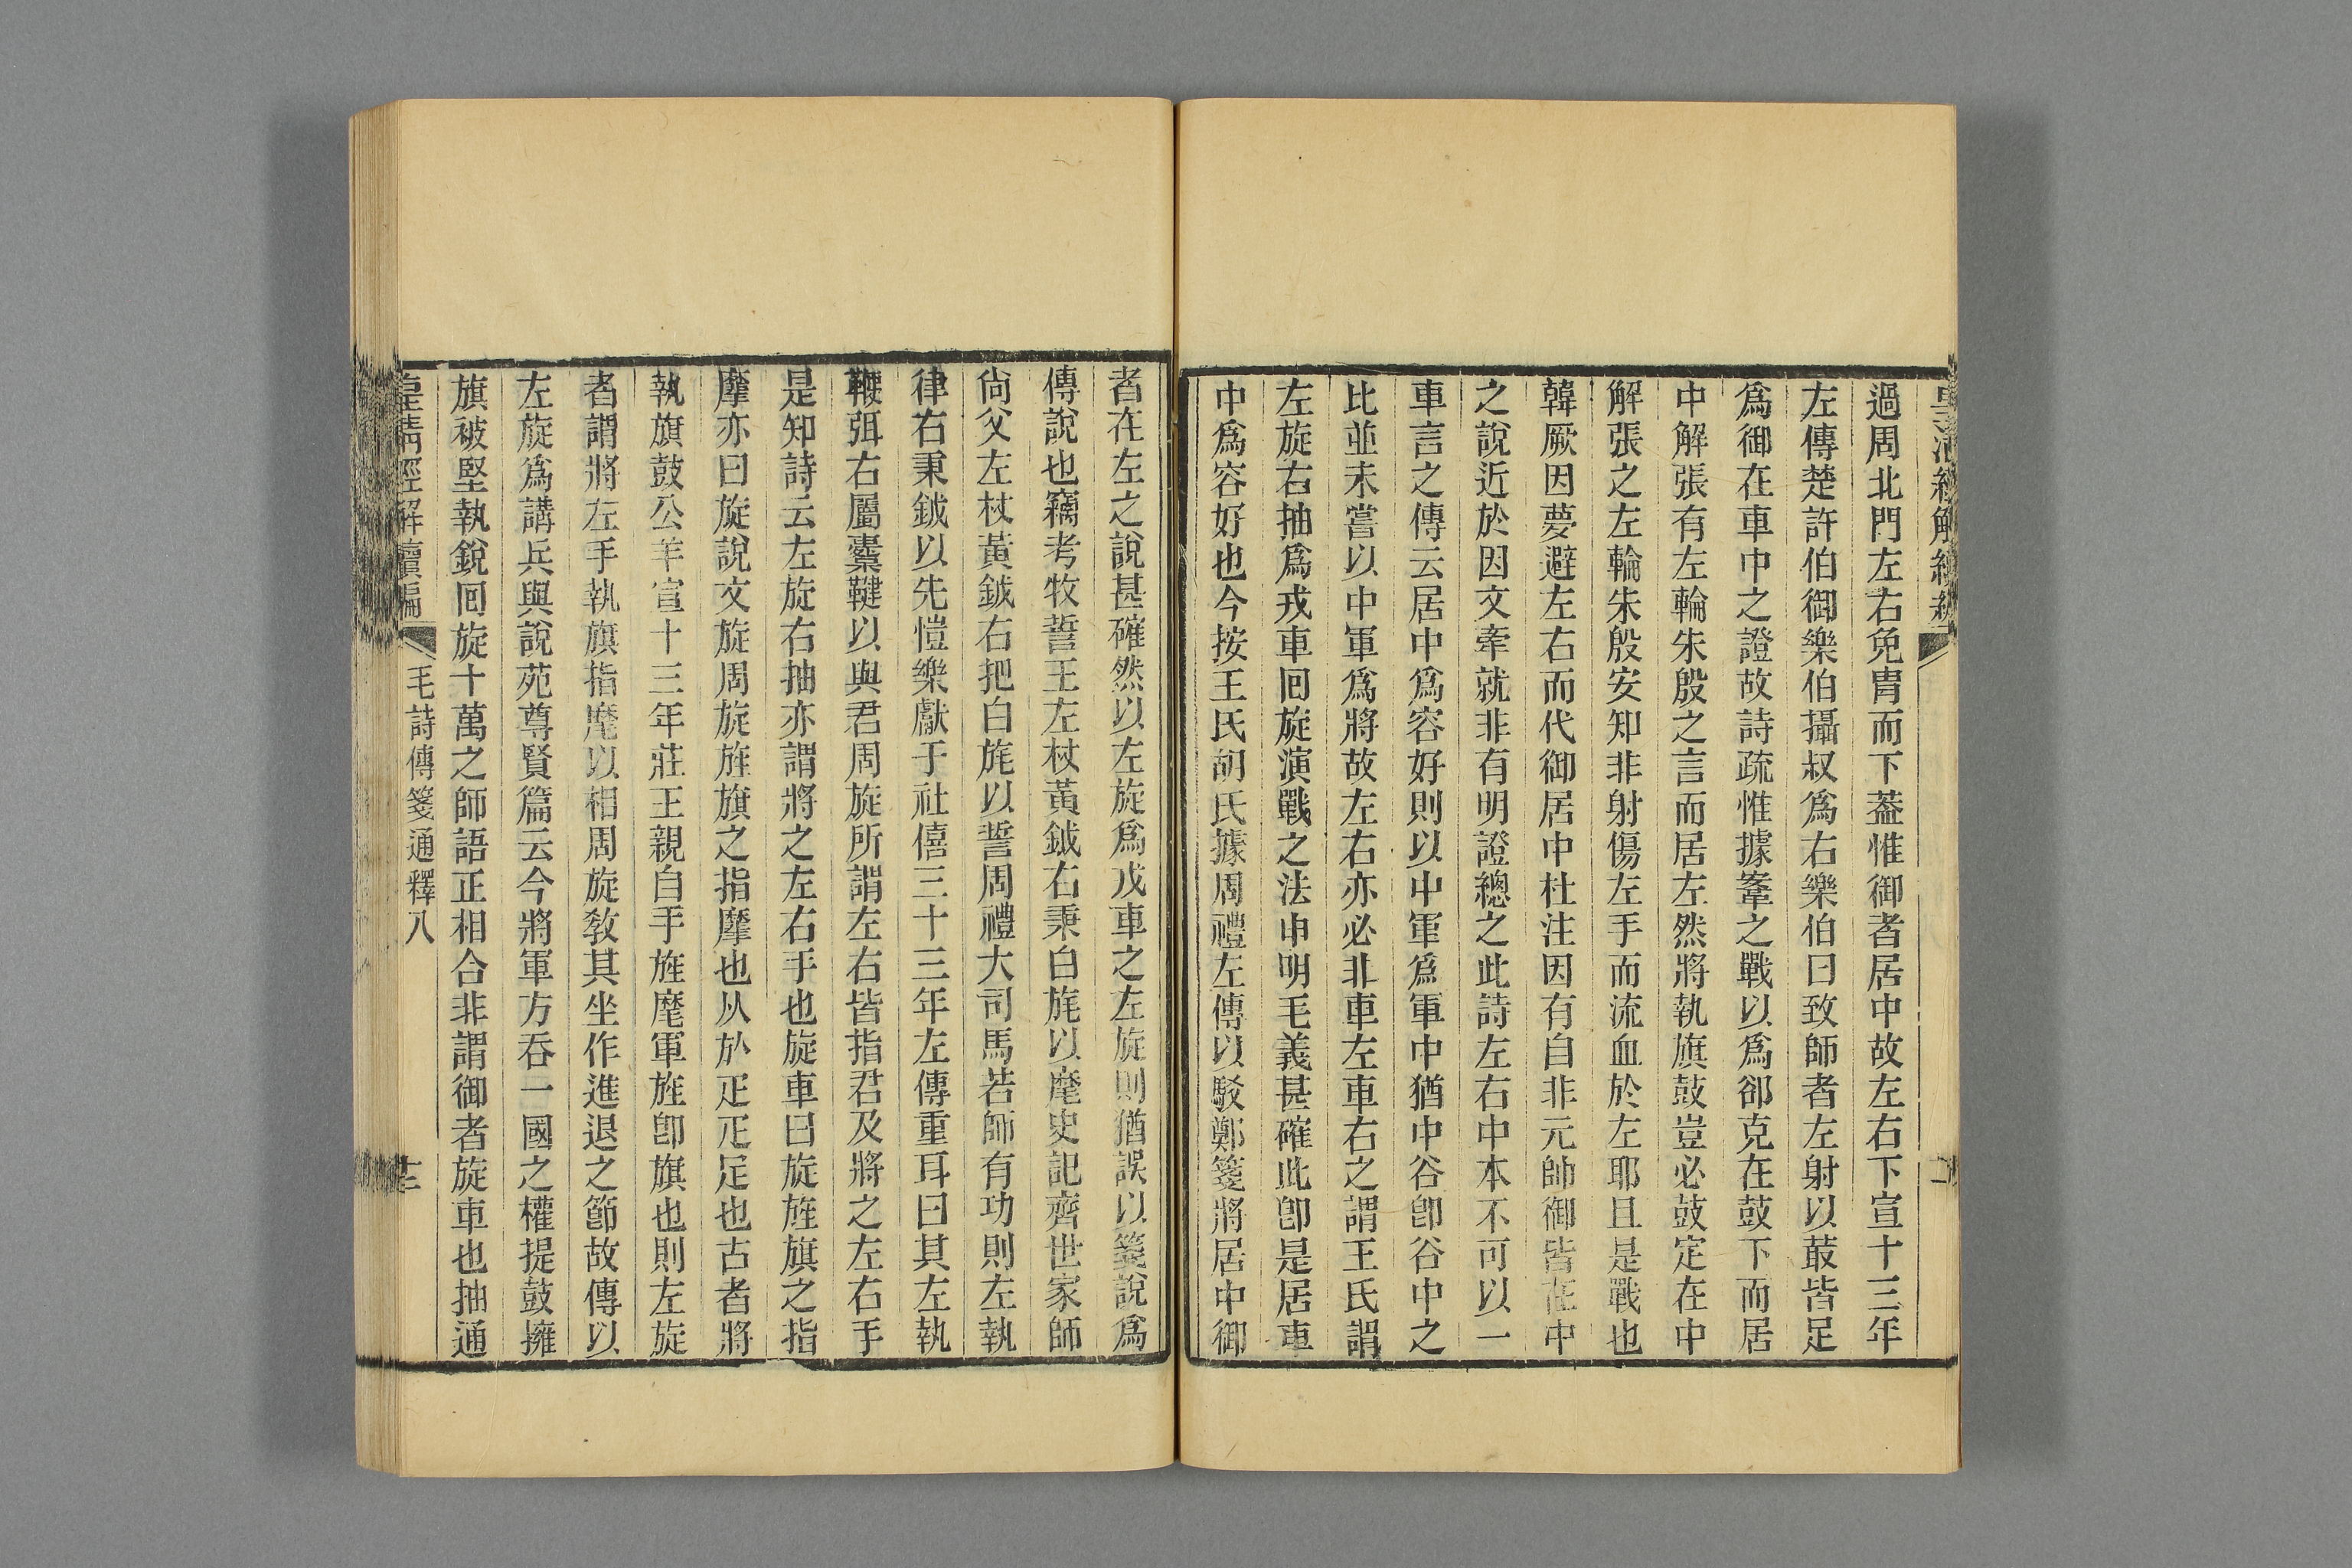 過周北門左右免冑而下葢惟御者居中故左右下宣十三年
左傳楚許伯御樂伯攝叔爲右樂伯曰致師者左射以菆皆足
爲御在車中之證故詩疏惟據鞌之戰以爲郤克在鼓下而居
中解張有左輪朱殷之言而居左然將執旗鼓豈必鼓定在中
解張之左輪朱殷安知非射傷左手而流血於左耶且是戰也
韓厥因夢避左右而代御居中杜注因有自非元帥御皆在中
之說近於因文牽就非有明證總之此詩左右中本不可以一
車言之傳云居中爲容好則以中軍爲軍中猶中谷卽谷中之
比並未嘗以中軍爲將故左右亦必非車左車右之謂王氏謂
左旋右抽爲戎車回旋演戰之法申明毛義甚確此卽是居車
中爲容好也今按王氏胡氏據周禮左傳以駁鄭箋將居中御
者在左之說甚確然以左旋爲戎車之左旋則猶誤以箋說爲
傳說也竊考牧誓王左杖黃鉞右秉白旄以麾史記齊世家師
尙父左杖黃鉞右把白旄以誓周禮大司馬若師有功則左執
律右秉鉞以先愷樂獻于社僖三十三年左傳重耳曰其左執
鞭弭右屬櫜鞬以與君周旋所謂左右皆指君及將之左右手
是知詩云左旋右抽亦謂將之左右手也旋車曰旋旌旗之指
摩亦曰旋說文旋周旋旌旗之指摩也从㫃疋疋足也古者將
執旗鼓公羊宣十三年莊王親自手旌麾軍旌卽旗也則左旋
者謂將左手執旗指麾以相周旋敎其坐作進退之節故傳以
左旋爲講兵與說苑尊賢篇云今將軍方吞一國之權提鼓擁
旗被堅執銳回旋十萬之師語正相合非謂御者旋車也抽通
皇淸經解續編
毛詩傳箋通釋八